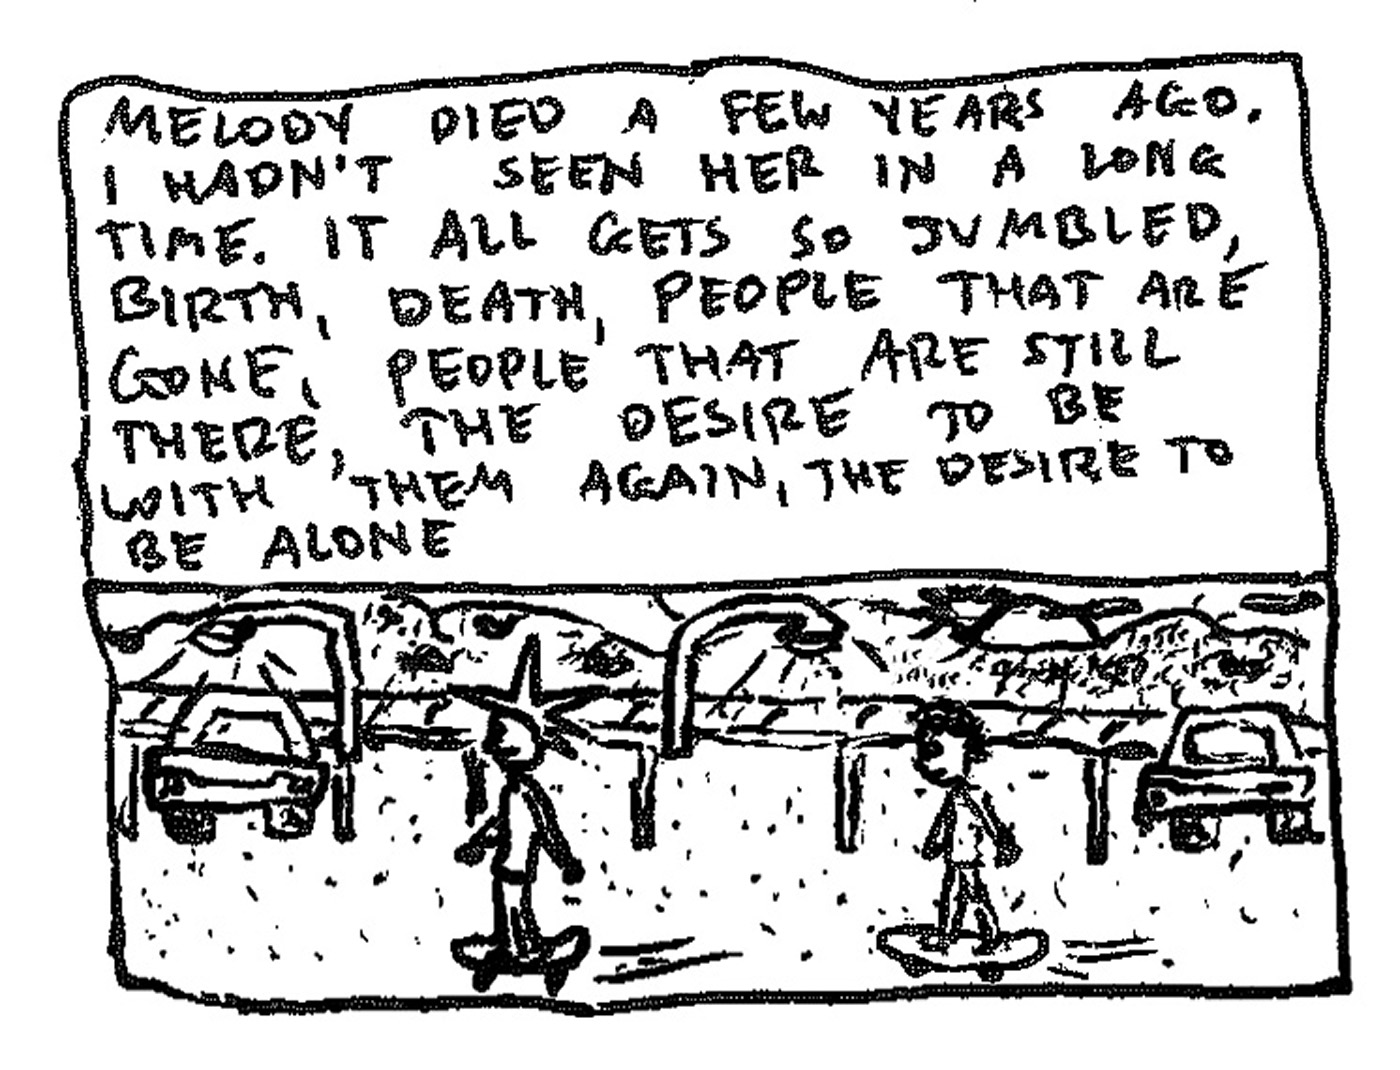 MELODY DIED A FEW YEARS AGO.
I HADN'T SEEN HER IN A LONG
TIME. IT ALL GETS SO JUMBLED,
BIRTH, DEATH, PEOPLE THAT ARE
GONE, PEOPLE THAT ARE STILL
THERE, THE DESIRE TO BE
WITH THEM AGAIN, THE DESIRE TO
BE ALONE